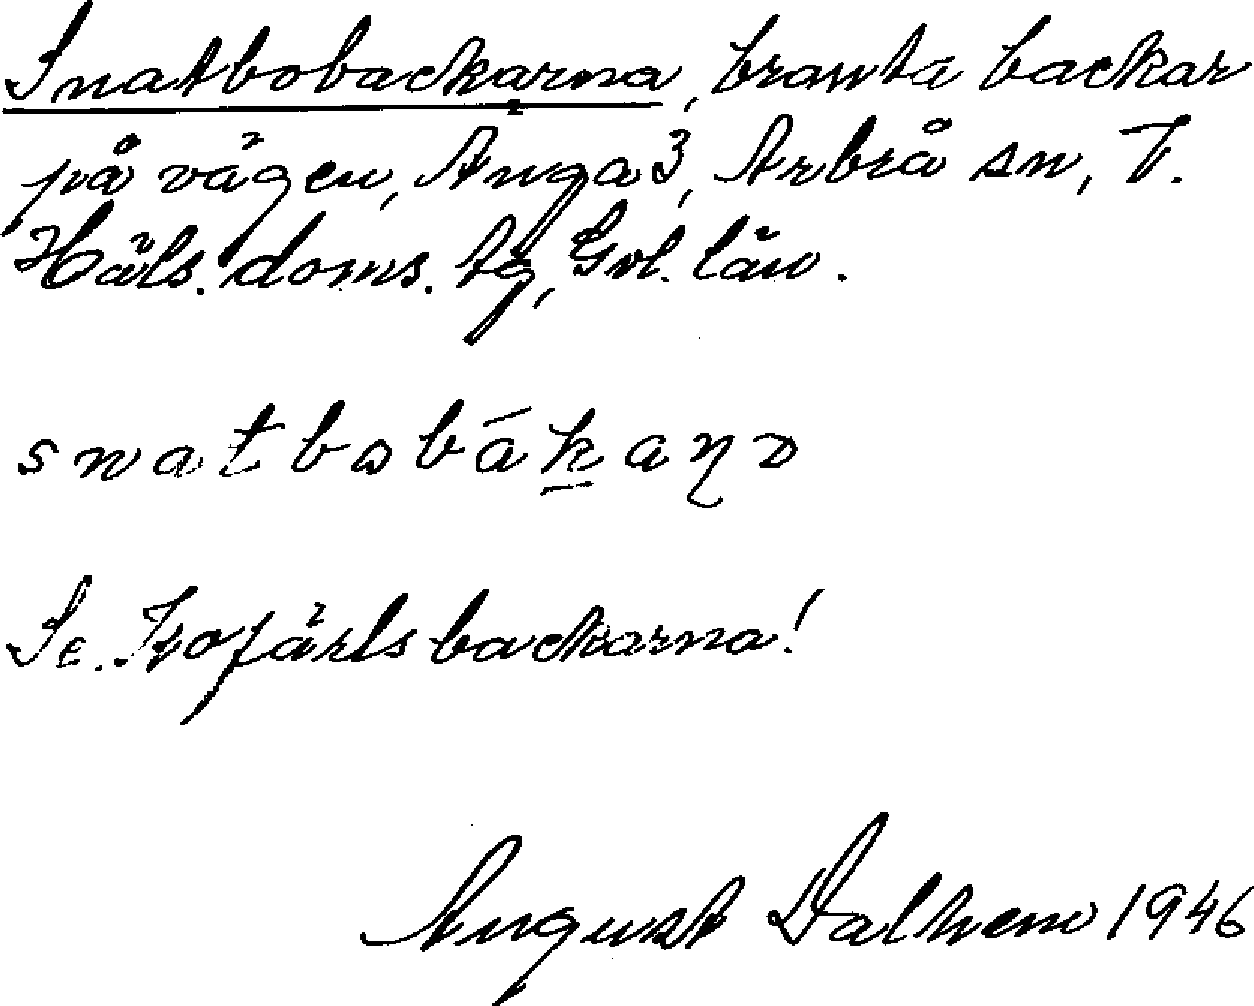 Snatbobackarna, branta backar
på vägen, Anga 3, Arbrå sn, V.
Häls. doms. tg, Gvl. län.
snatbobákaɳɔ
Se. Kofärlsbackarna!
August Dalhem 1946